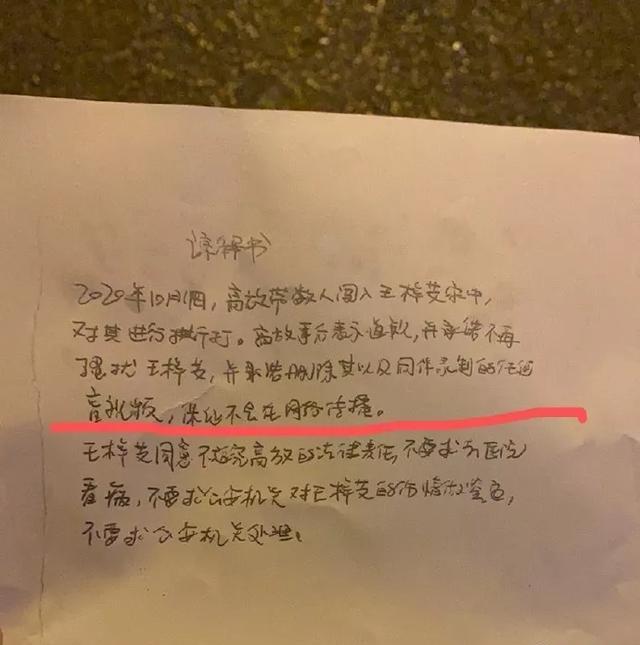 谅解书
2020年10月1日,高放带数人闯入王梓芠家中,
对其进行执行打。高放事后表示道歉,并承诺不再
骚扰王梓芠,并承诺删除其以及同伴录制的任何
音视频,保证不会在网络传播。
王梓芠同意不追究高放的法律责任,不要求去医院
看病,不要求公安机关对王梓芠的伤情做鉴定,
不要求公安机关处理。